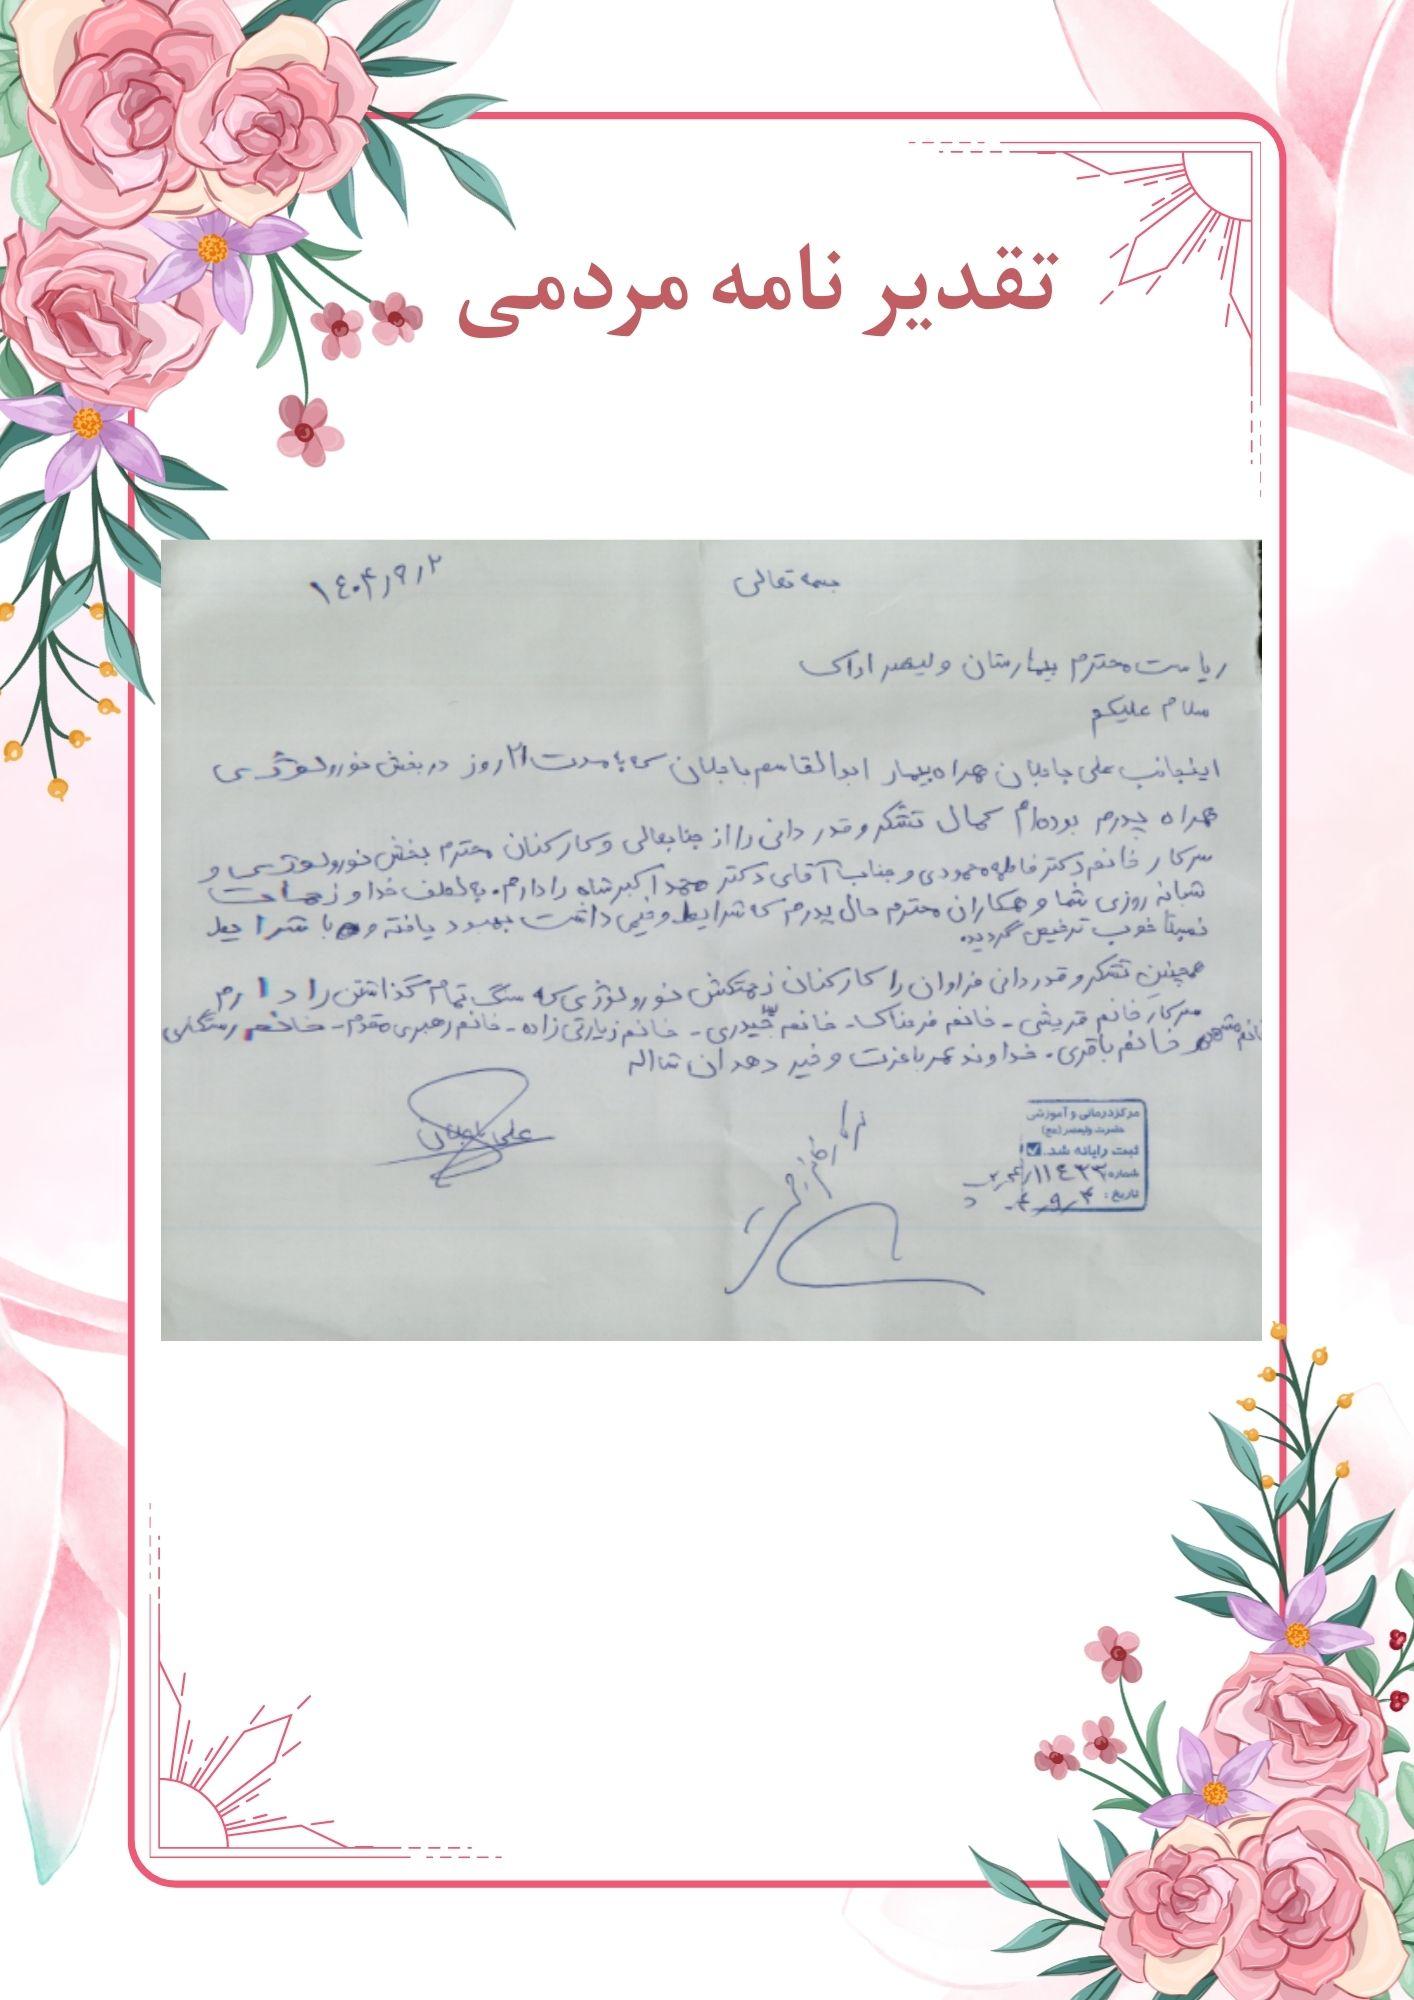 تقدیر نامه مردمی
بسمه تعالی
۱۴۰۴٫۹٫۲
ریاست محترم بیمارستان ولیعصر اراک
سلام علیکم
اینجانب علی بابلان همراه بیمار ابوالقاسم بابلان که به مدت ۲۱ روز در بخش نورولوژی
همراه پدرم بوده‌ام کمال تشکر و قدردانی را از جنابعالی و کارکنان محترم بخش نورولوژی و
سرکار خانم دکتر محمودی و جناب آقای دکتر اکبرشاه را دارم. به لطف خدا و زحمات
شبانه روزی شما و همکاران محترم حال پدرم که شرایط وخیمی داشت بهبود یافته و با شرایط
نسبتاً خوب ترخیص گردید.
همچنین تشکر و قدردانی فراوان را کارکنان زحمتکش نورولوژی که سنگ تمام گذاشتن را دارم
سرکار خانم قریشی - خانم فرمناک - خانم حیدری - خانم زیارتی زاده - خانم رهبری مقدم - خانم
خانم خانم باقری. خداوند عمر باعزت و خیر دهد ان شااله
علی بابلان
مرکز درمانی و آموزشی
حضرت ولیعصر (عج)
ثبت رایانه شد.
شماره
تاریخ: ۴٫۹٫۴